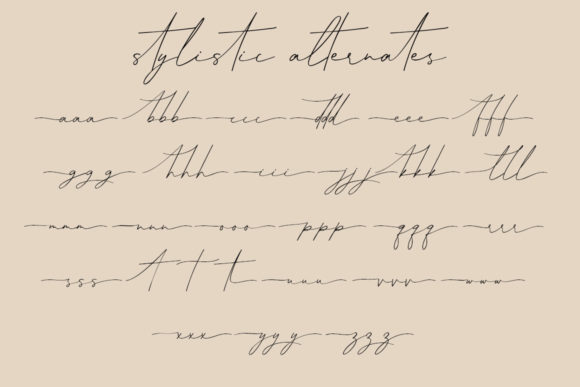 stylistic alternates
aaa bbb ccc ddd eee fff
ggg hhh iii jjj kkk lll
mmm nnn ooo ppp qqq rrr
sss ttt uuu vvv www
xxx yyy zzz